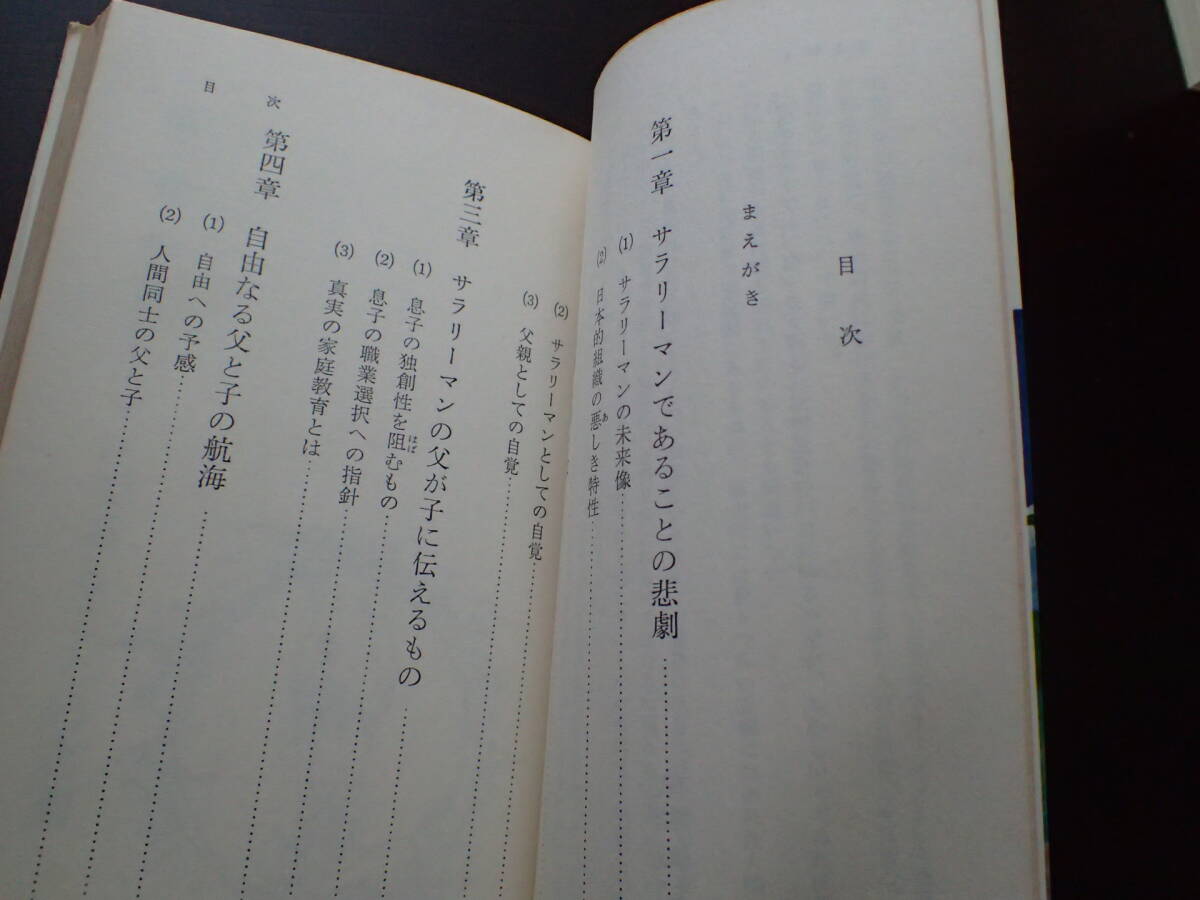 目次
まえがき
第一章 サラリーマンであることの悲劇…………
(1) サラリーマンの未来像…………
(2) 日本的組織の悪しき特性…………
あ
(2) サラリーマンとしての自覚…………
(3) 父親としての自覚…………
第三章 サラリーマンの父が子に伝えるもの…………
(1) 息子の独創性を阻むもの…………
はば
(2) 息子の職業選択への指針…………
(3) 真実の家庭教育とは…………
第四章 自由なる父と子の航海…………
(1) 自由への予感…………
(2) 人間同士の父と子…………
目次